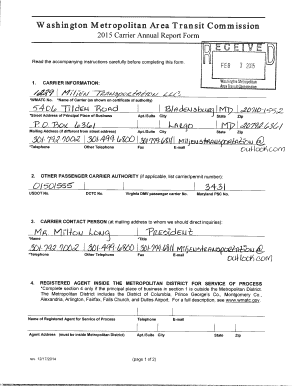 Washington Metropolitan Area Transit Commission
2015 Carrier Annual Report Form
RECEIVED
FEB 3 2015
Washington Metropolitan
Area Transit Commission
Read the accompanying instructions carefully before completing this form.
1. CARRIER INFORMATION:
Milien Transportation LLC
*WMATC No. *Name of Carrier (as shown on certificate of authority)
5406 Tilden Road Bladensburg MD
*Street Address of Principal Place of Business Apt./Suite City State Zip
P.O. Box 6361 Largo MD
Mailing Address (if different from street address) Apt./Suite City State Zip
301 792 7002 301 499 6800
*Telephone Other Telephone Fax E-mail
outlook.com
2. OTHER PASSENGER CARRIER AUTHORITY (if applicable, list carrier/permit number):
01501555 3431
USDOT No. DCTC No. Virginia DMV passenger carrier No. Maryland PSC No.
3. CARRIER CONTACT PERSON (at mailing address to whom we should direct inquiries):
Mr Milton Long President
*Name *Title
301 792 7002 301 499 6800
*Telephone Other Telephone Fax E-mail
outlook.com
4. REGISTERED AGENT INSIDE THE METROPOLITAN DISTRICT FOR SERVICE OF PROCESS
*Complete section 4 only if the principal place of business in section 1 is outside the Metropolitan District.
The Metropolitan District includes the District of Columbia, Prince George's Co., Montgomery Co.,
Alexandria, Arlington, Fairfax, Falls Church, and Dulles Airport. For a full description, see www.wmatc.gov.
Name of Registered Agent for Service of Process Telephone E-mail
Agent Address (must be inside Metropolitan District) Apt./Suite City State Zip
rev. 12/17/2014 (page 1 of 2)